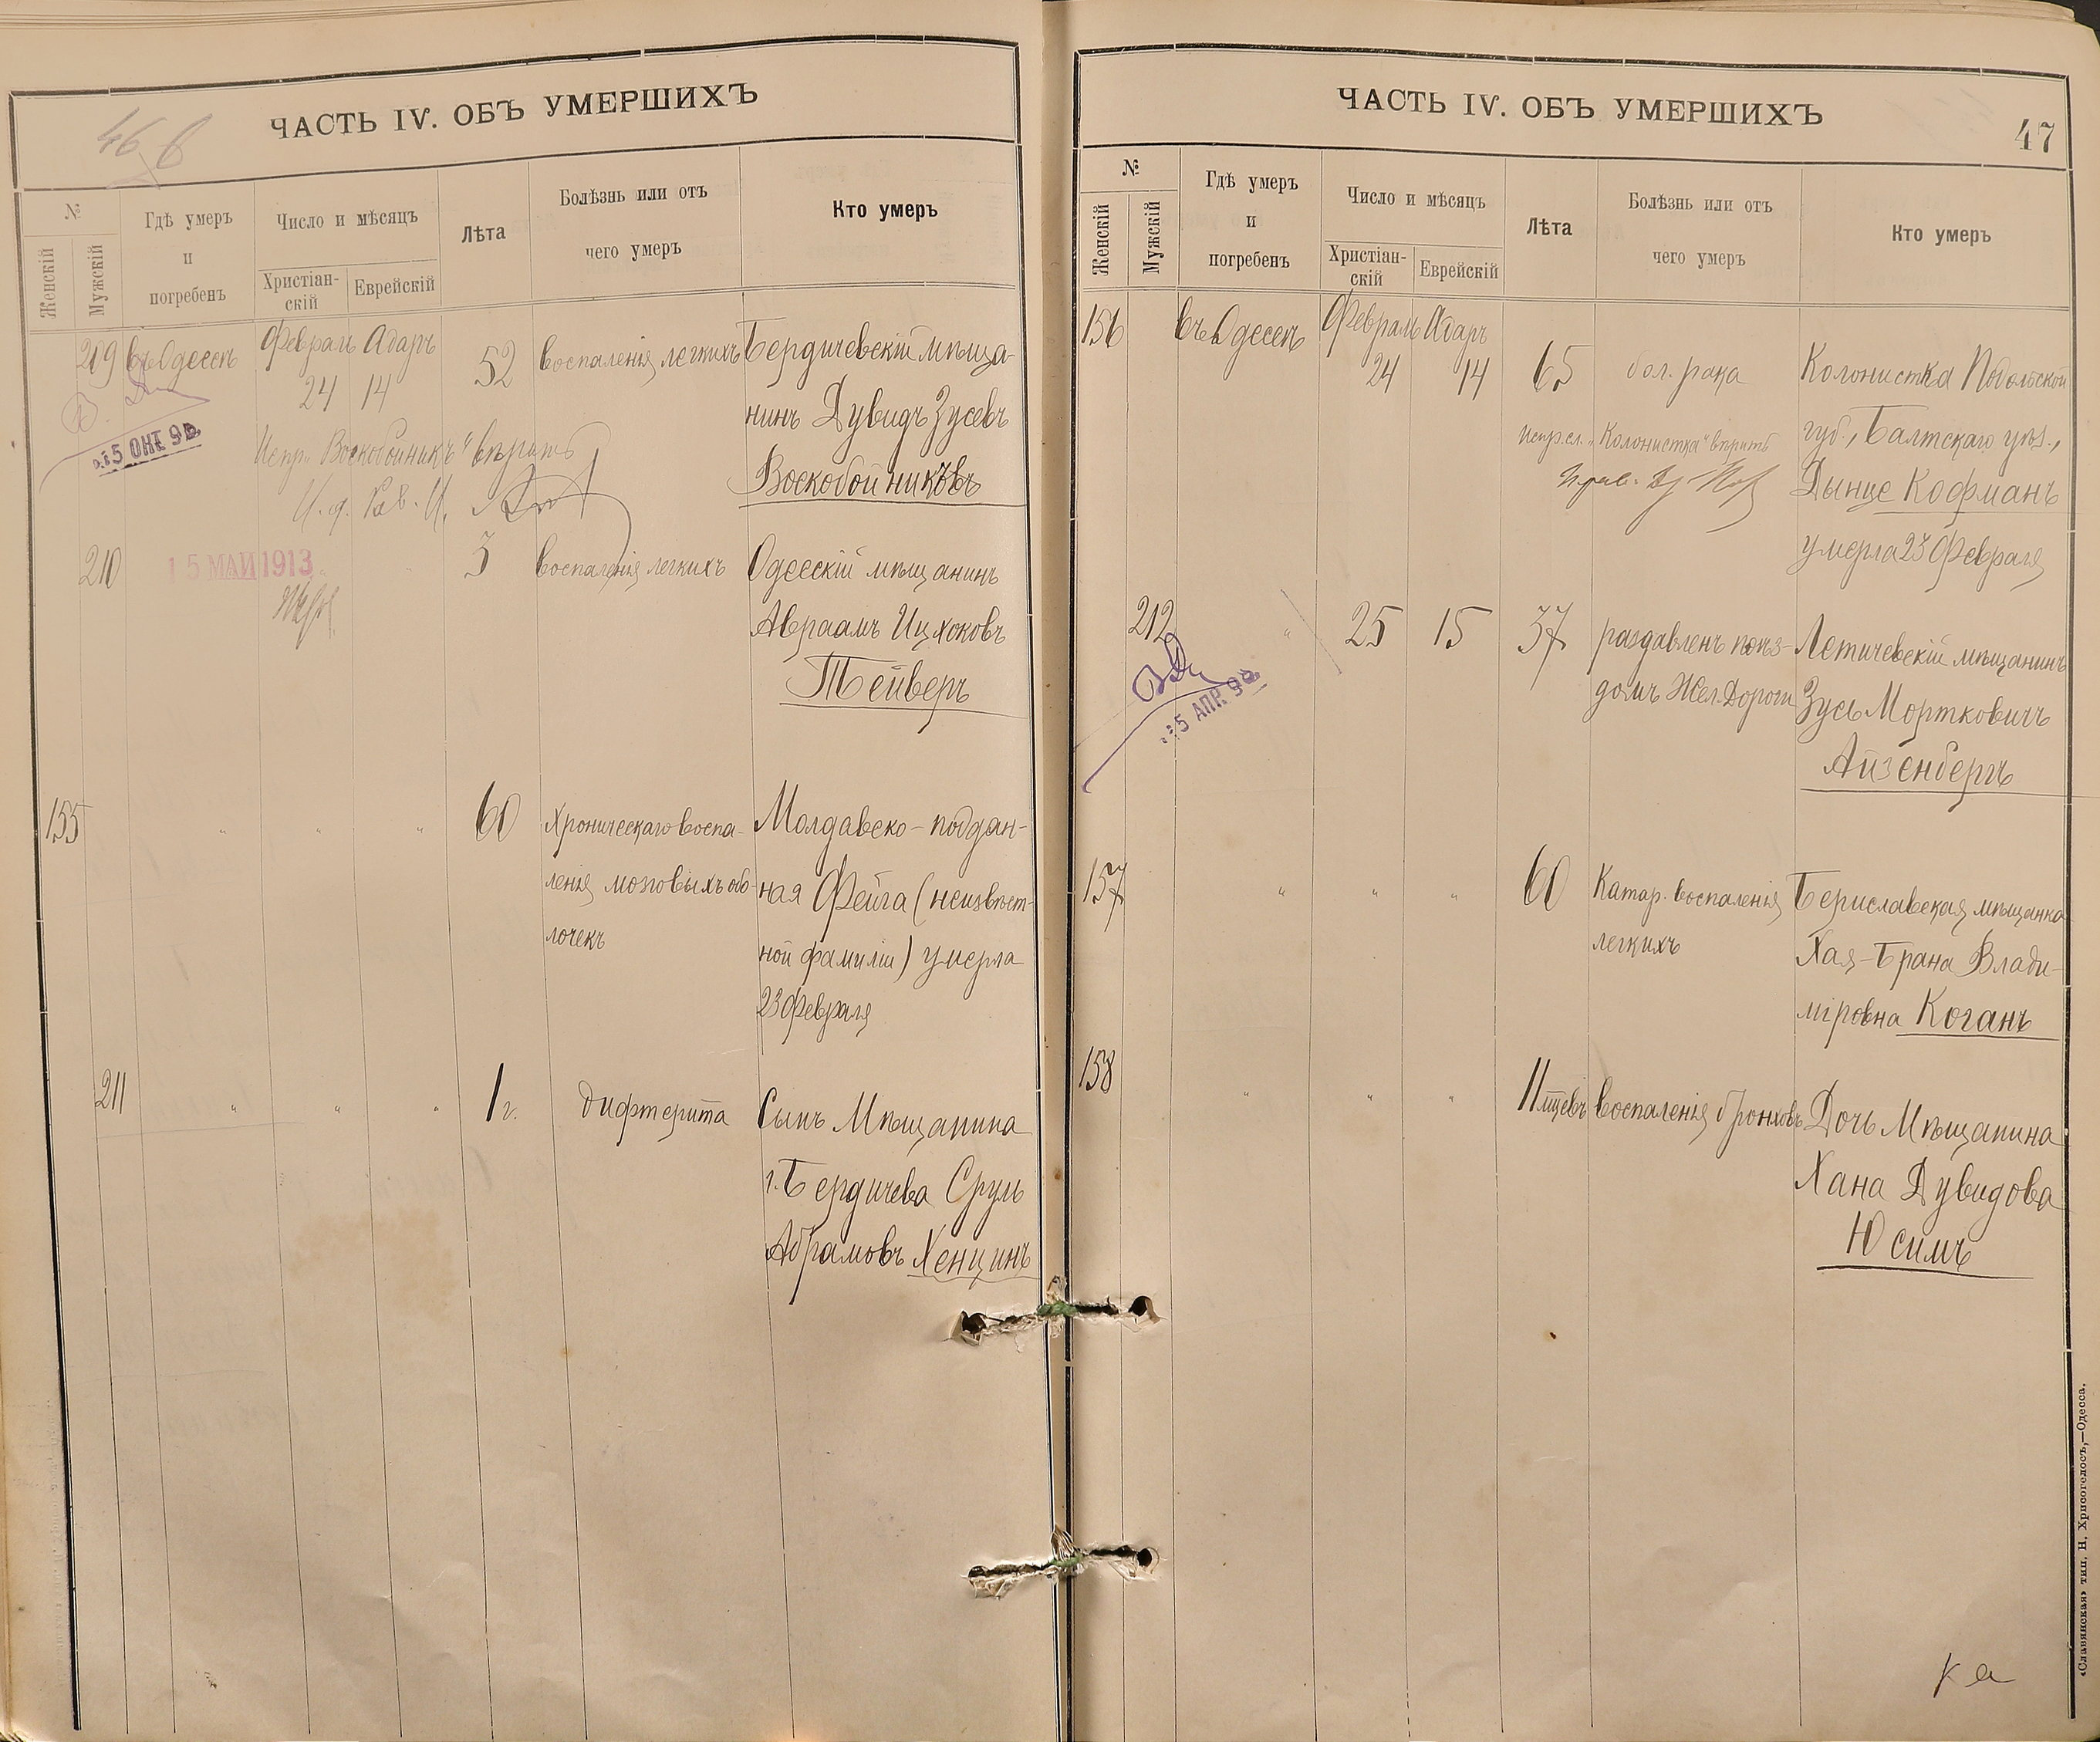 46 б
ЧАСТЬ IV. ОБЪ УМЕРШИХЪ
№
Женскій
Мужскій
Гдѣ умеръ
и
погребенъ
Число и мѣсяцъ
Христіан-
скій
Еврейскій
Лѣта
Болѣзнь или отъ
чего умеръ
Кто умеръ
209 въ Одессѣ Февраль Адаръ 52 воспаленія легкихъ Бердичевскій мѣща-
24 14
нинъ Дувидъ Зусевъ
Воскобойниковъ
5 ОКТ 9
Испр. „Воскобойникъ“ вѣрить
И. д. Рав.
210 3 воспаленія легкихъ Одесскій мѣщанинъ
15 МАЙ 1913
Авраамъ Ицхоковъ
Тейверъ
155 „ „ „ 60 Хроническаго воспа- Молдавско-поддан-
ленія мозговыхъ обо- ная Фейга (неизвѣст-
лочекъ ной фамиліи) умерла
23 Февраля
211 „ „ „ 1 г. дифтерита Сынъ Мѣщанина
г. Бердичева Сруль
Абрамовъ Хенцинъ
ЧАСТЬ IV. ОБЪ УМЕРШИХЪ
47
№
Женскій
Мужскій
Гдѣ умеръ
и
погребенъ
Число и мѣсяцъ
Христіан-
скій
Еврейскій
Лѣта
Болѣзнь или отъ
чего умеръ
Кто умеръ
156 въ Одессѣ Февраль Адаръ
24 14 65 бол. рака Колонистка Подольской
губ., Балтскаго уѣз.,
Испр. сл. „Колонистка“ вѣрить
Дынце Кофманъ
умерла 23 Февраля
212 „ 25 15 37 раздавленъ поѣз- Летичевскій мѣщанинъ
домъ Жел. Дороги Зусь Мортковичъ
Айзенбергъ
5 АПР. 9
157 „ „ „ 60 Катар. воспаленія Бериславская мѣщанка
легкихъ Хая-Брана Влади-
міровна Коганъ
158 „ „ „ 11 мѣсцевъ воспаленія бронховъ Дочь Мѣщанина
Хана Дувидова
Юсимъ
«Славянская» тип. Н. Хрисогелосъ,—Одесса.